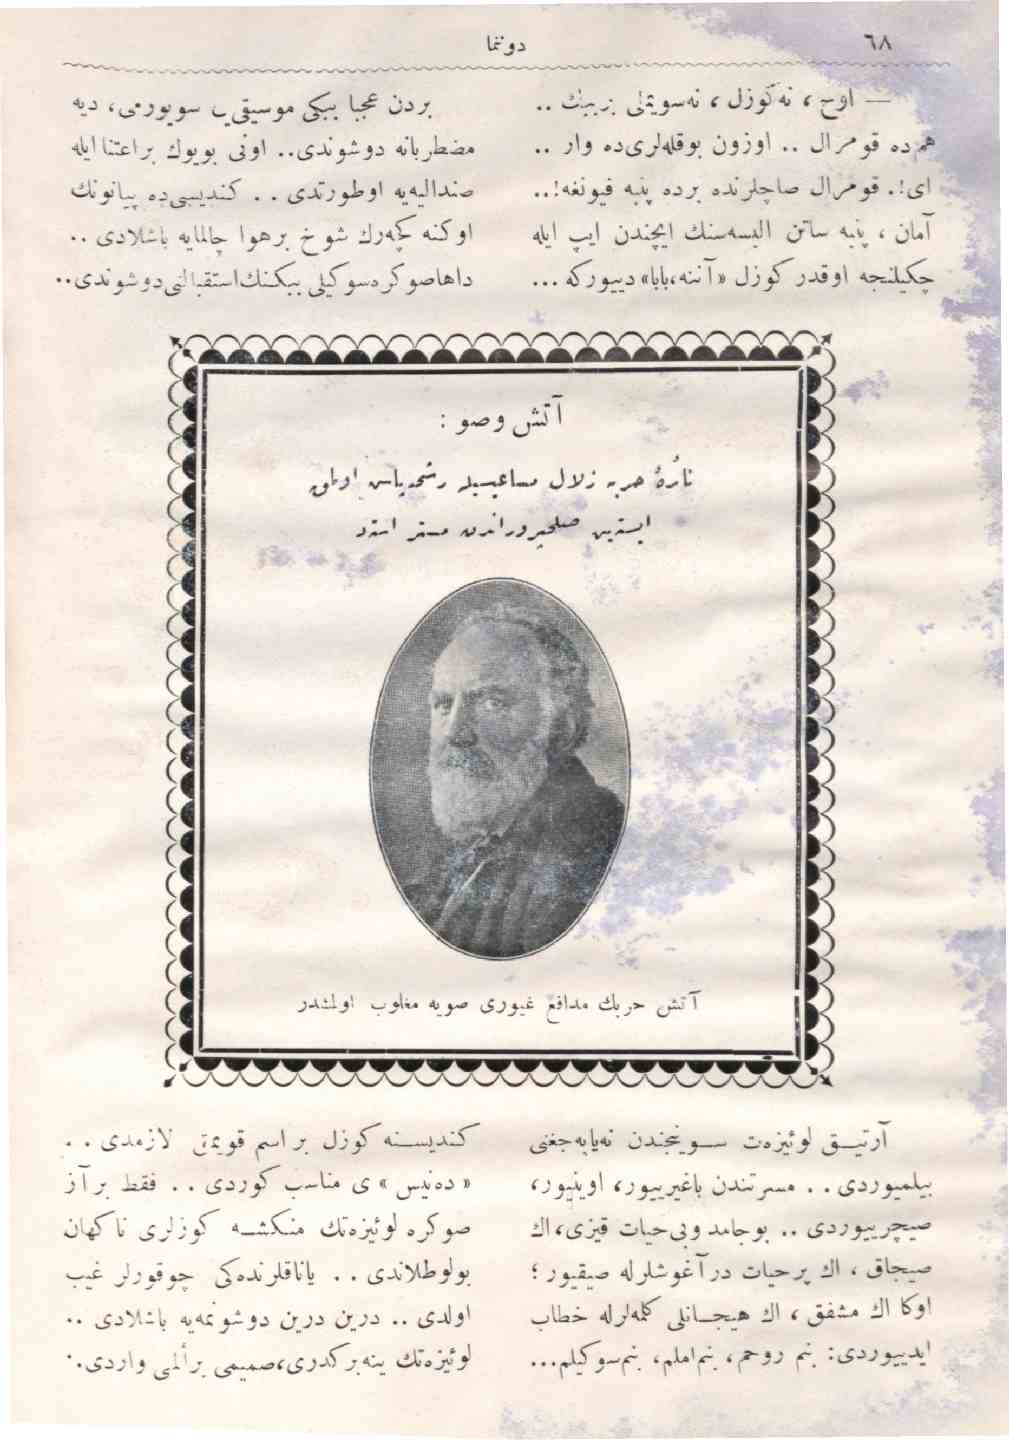 ٦٨
دوننما
— اوح ، نه کوزل ، نه سویملی بر ببك ..
هم ده قومرال .. اوزون بوقله لری ده وار ..
ای !. قومرال صاچلرنده برده پنبه فیونغه !..
آمان ، پنبه ساتن البسه سنك ایچندن ایپ ایله
چکیلنجه اوقدر کوزل « آننه ، بابا » دییورکه ...
بردن عجبا ببکی موسیقی یی سویورمی ، دیه
مضطربانه دوشوندی .. اونی بویوك بر اعتنا ایله
صندالیه یه اوطورتدی . . کندیسی ده پیانونك
اوکنه کچه رك شوخ بر هوا چالمایه باشلادی ..
داها صوکره سوکیلی ببکنك استقبالنی دوشوندی ..
آتش و صو :
نائرۀ حربه زلال مساعیسیله رشحه پاش اولمق
ایسته ین صلحپروراندن مستر استد
آتش حربك مدافع غیوری صویه مغلوب اولمشدر
آرتیــق لوئیزه ت ســوینجندن نه یاپه جغنی
بیلمیوردی . . مسرتندن باغیرییور ، اوینیور ،
صیچرییوردی .. بو جامد و بی حیات قیزی ، اك
صیجاق ، اك پر حیات در آغوشلرله صیقیور ؛
اوکا اك مشفق ، اك هیجــانلی کله لرله خطاب
ایدییوردی : بنم روحم ، بنم املم ، بنم سوکیلم ...
کندیســنه کوزل بر اسم قویمق لازمدی . .
« ده نیس » ی مناسب کوردی . . فقط بر آز
صوکره لوئیزه تك منکشــه کوزلری ناکهان
بولوطلاندی . . یاناقلرنده کی چوقورلر غیب
اولدی .. درین درین دوشونمه یه باشلادی ..
لوئیزه تك ینه بر کدری ، صمیمی بر ألمی واردی .